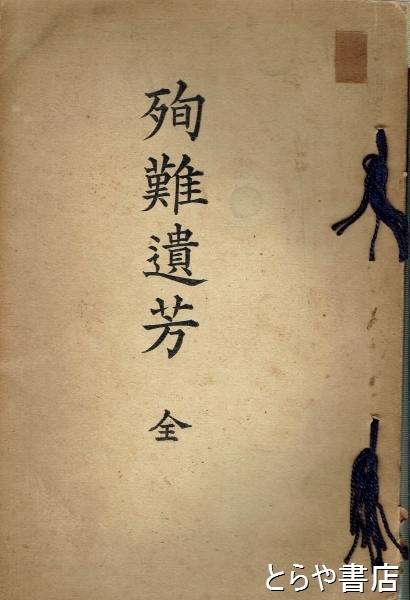 殉難遺芳 全
とらや書店